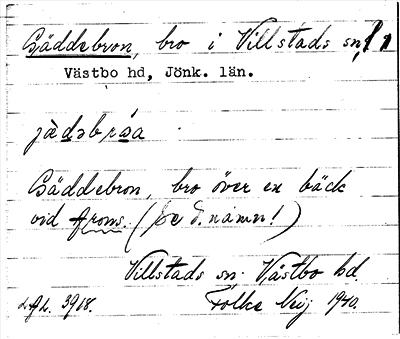 Gäddebron, bro i Villstads sn,
Västbo hd, Jönk. län.
jädsbrͅsa
Gäddebron, bro över en bäck
vid froms. (se d. namn!)
Villstads sn. Västbo hd.
LAL. 3918. Folke Nuij 1940.